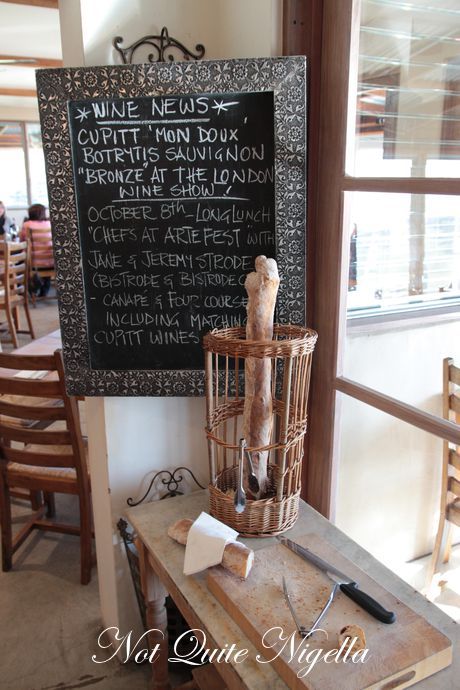 *WINE NEWS*
CUPITT 'MON DOUX'
BOTRYTIS SAUVIGNON
"BRONZE" AT THE LONDON
WINE SHOW!
OCTOBER 8th - LONG LUNCH
"CHEFS AT ARTE FEST" WITH
JANE & JEREMY STRODE
(BISTRODE & BISTRODE C
- CANAPE & FOUR COURSE
INCLUDING MATCHING
CUPITT WINES
Not Quite Nigella